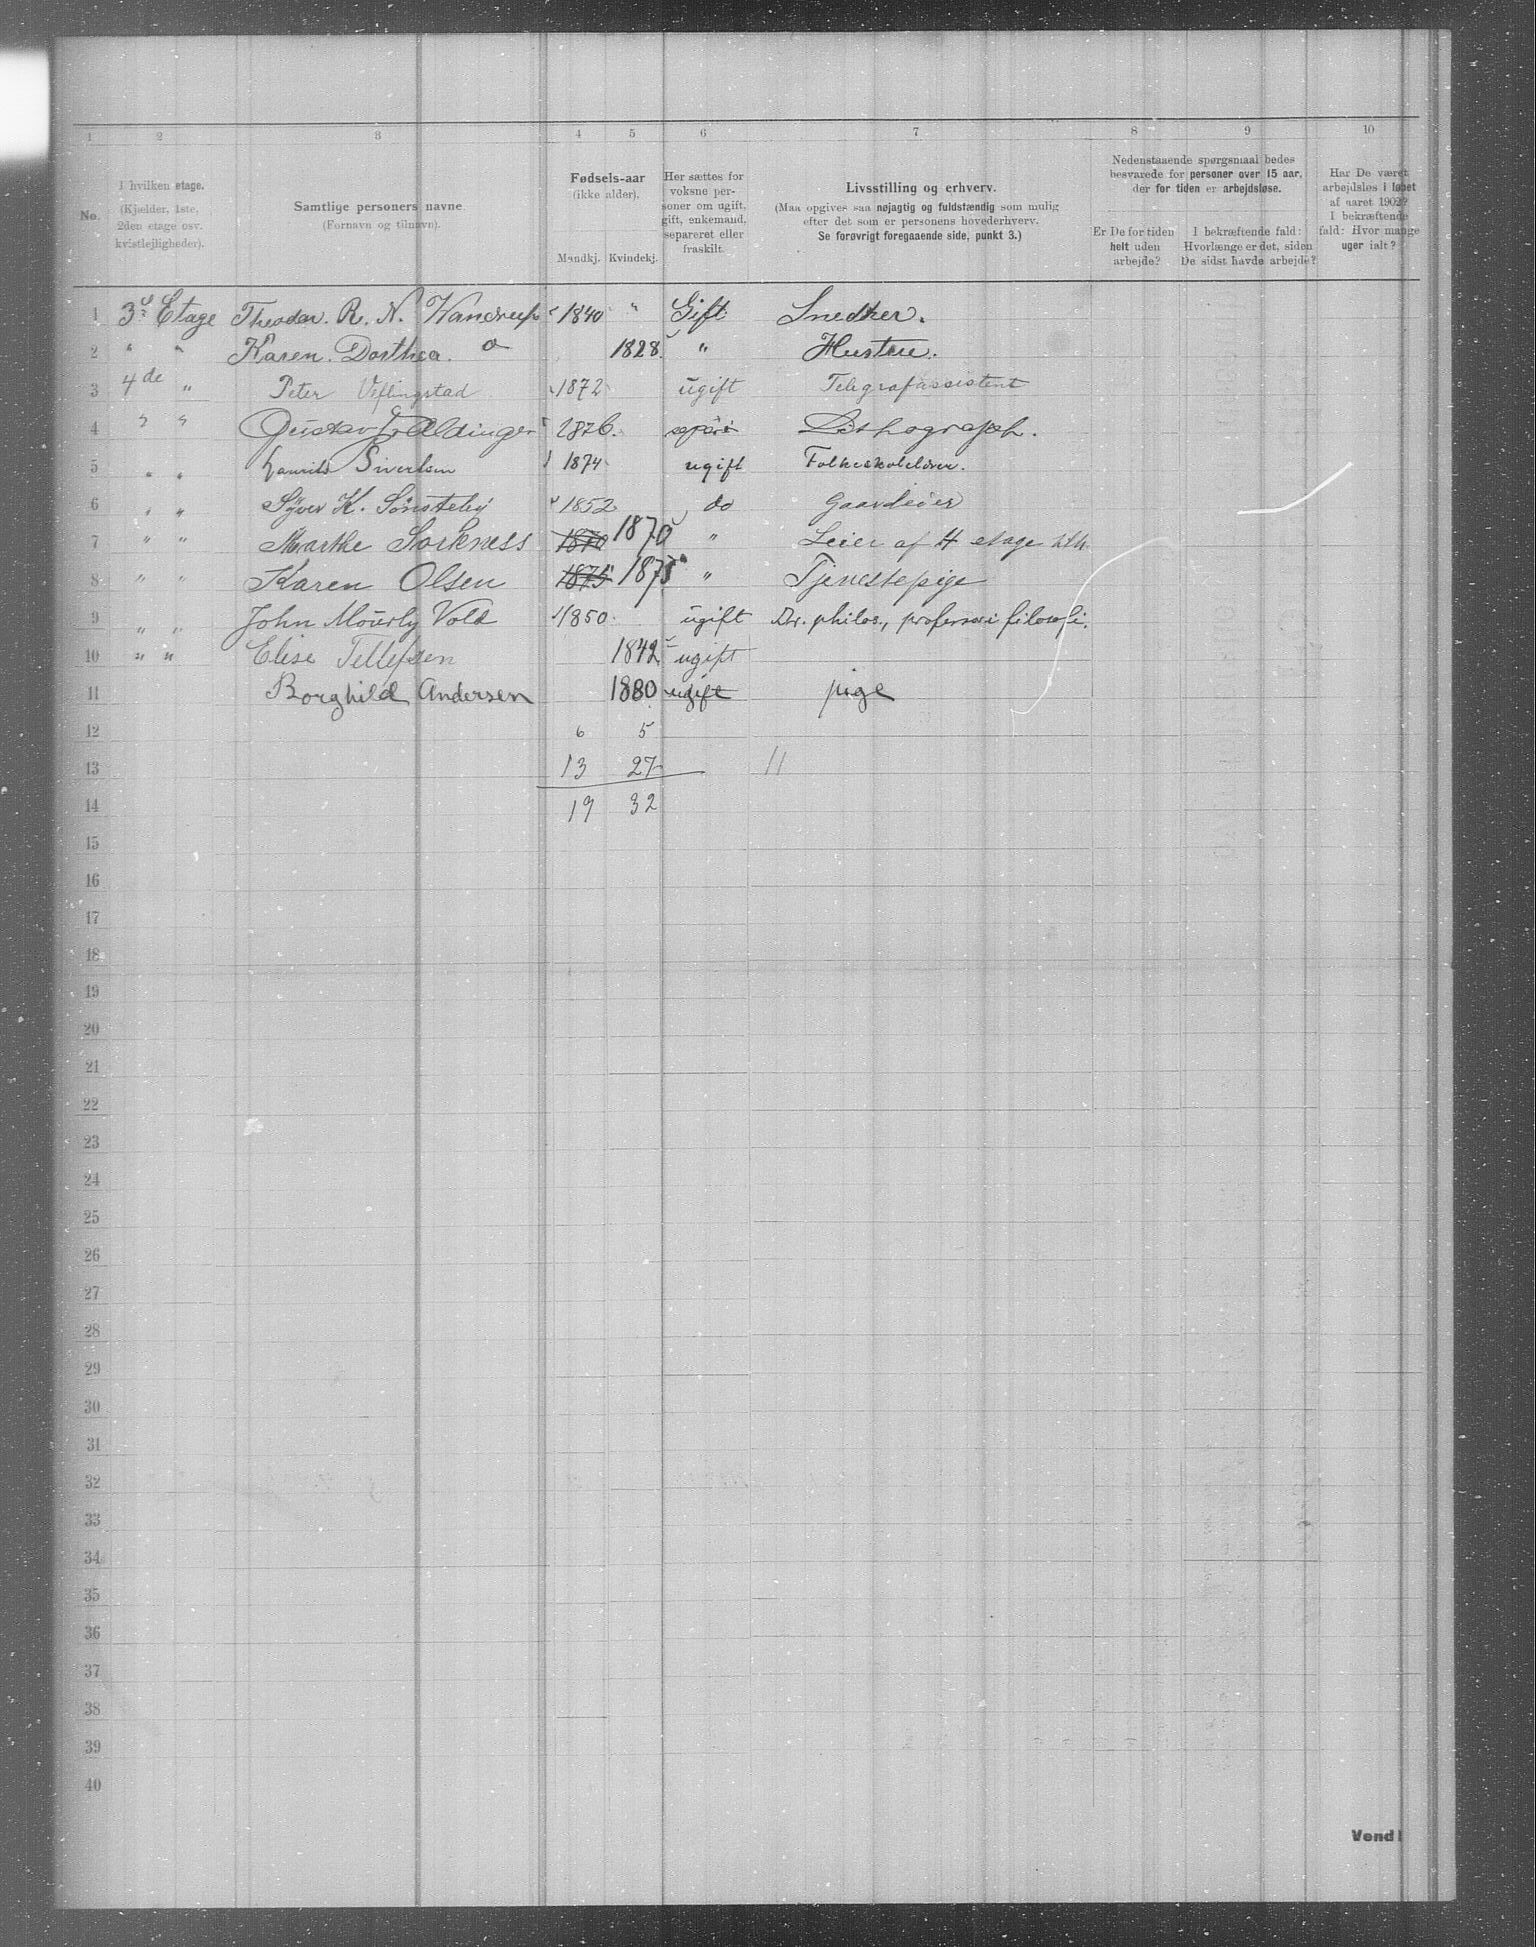 1 2 3 4 5 6 7 8 9 10
No.
I hvilken etage.
(Kjælder, 1ste,
2den etage osv.
kvistlejligheder).
Samtlige personers navne
(Fornavn og tilnavn).
Fødsels-aar
(ikke alder).
Mandkj. Kvindekj.
Her sættes for
voksne per-
soner om ugift,
gift, enkemand,
separeret eller
fraskilt.
Livsstilling og erhverv.
(Maa opgives saa nøjagtig og fuldstændig som mulig
efter det som er personens hovederhverv.
Se forøvrigt foregaaende side, punkt 3.)
Nedenstaaende spørgsmaal bedes
besvarede for personer over 15 aar,
der for tiden er arbejdsløse.
Er De for tiden
helt uden
arbejde?
I bekræftende fald:
Hvorlænge er det, siden
De sidst havde arbejde?
Har De været
arbejdsløs i løbet
af aaret 1902?
I bekræftende
fald: Hvor mange
uger ialt?
1 3d Etage Theodor. R. N. Wandrup 1840 " Gift Snedker.
2 " " Karen. Dorthea. 1828. " Hustru.
3 4de " Peter Veflingstad 1872 ugift Telegrafassistent
4 " " Gustav Aldinger 1876. Lithograph.
5 " " Laurits Sivertsen 1874 ugift Folkeskolelærer.
6 " " Syver K. Sønsteby 1852 do Gaardeier
7 " " Marthe Sorkness 1870 1870 " Leier af 4 etage
8 " " Karen Olsen 1875 1875 " Tjenestepige
9 " " John Mourly Vold 1850 ugift Dr. philos., professor i filosofi.
10 " " Elise Tellefsen 1842 ugift
11 Borghild Andersen 1880 ugift pige
12 6 5
13 13 27 11
14 19 32
15
16
17
18
19
20
21
22
23
24
25
26
27
28
29
30
31
32
33
34
35
36
37
38
39
40
Vend!